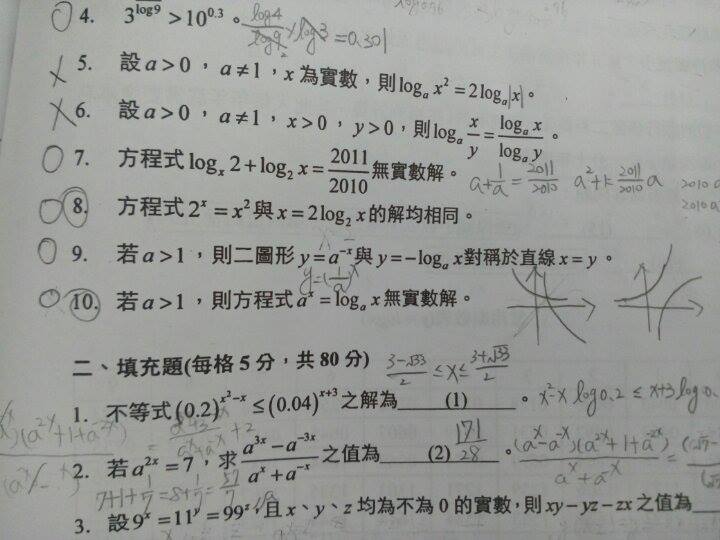 ○ 4. 3^{\frac{}{log9}} > 10^{0.3}。 \frac{log4}{log9_2} × log3 = 0.301
× 5. 設 a > 0，a ≠ 1，x 為實數，則 log_a x² = 2log_a|x|。
× 6. 設 a > 0，a ≠ 1，x > 0，y > 0，則 log_a \frac{x}{y} = \frac{log_a x}{log_a y}。
○ 7. 方程式 log_x 2 + log_2 x = \frac{2011}{2010} 無實數解。 a + \frac{1}{a} = \frac{2011}{2010} a²+1 \frac{2011}{2010} a
2010 a
○ 8. 方程式 2^x = x² 與 x = 2log_2 x 的解均相同。
○ 9. 若 a > 1，則二圖形 y = a^{-x} 與 y = −log_a x 對稱於直線 x = y。
y = (\frac{1}{a})^x
○ 10. 若 a > 1，則方程式 a^x = log_a x 無實數解。
二、填充題(每格 5 分，共 80 分) \frac{3-√33}{2} ≤ x ≤ \frac{3+√33}{2}
1. 不等式 (0.2)^{x²−x} ≤ (0.04)^{x+3} 之解為 (1) 。 x²-x log0.2 ≤ x+3 log0.
2. 若 a^{2x} = 7，求 \frac{a^{3x} − a^{−3x}}{a^x + a^{−x}} 之值為 (2) \frac{171}{28} 。 \frac{(a^x-a^{-x})(a^{2x}+1+a^{-2x})}{a^x+a^{-x}} =
7+1+\frac{1}{7} = 8+\frac{1}{7} = \frac{57}{7}
3. 設 9^x = 11^y = 99^z，且 x、y、z 均為不為 0 的實數，則 xy − yz − zx 之值為